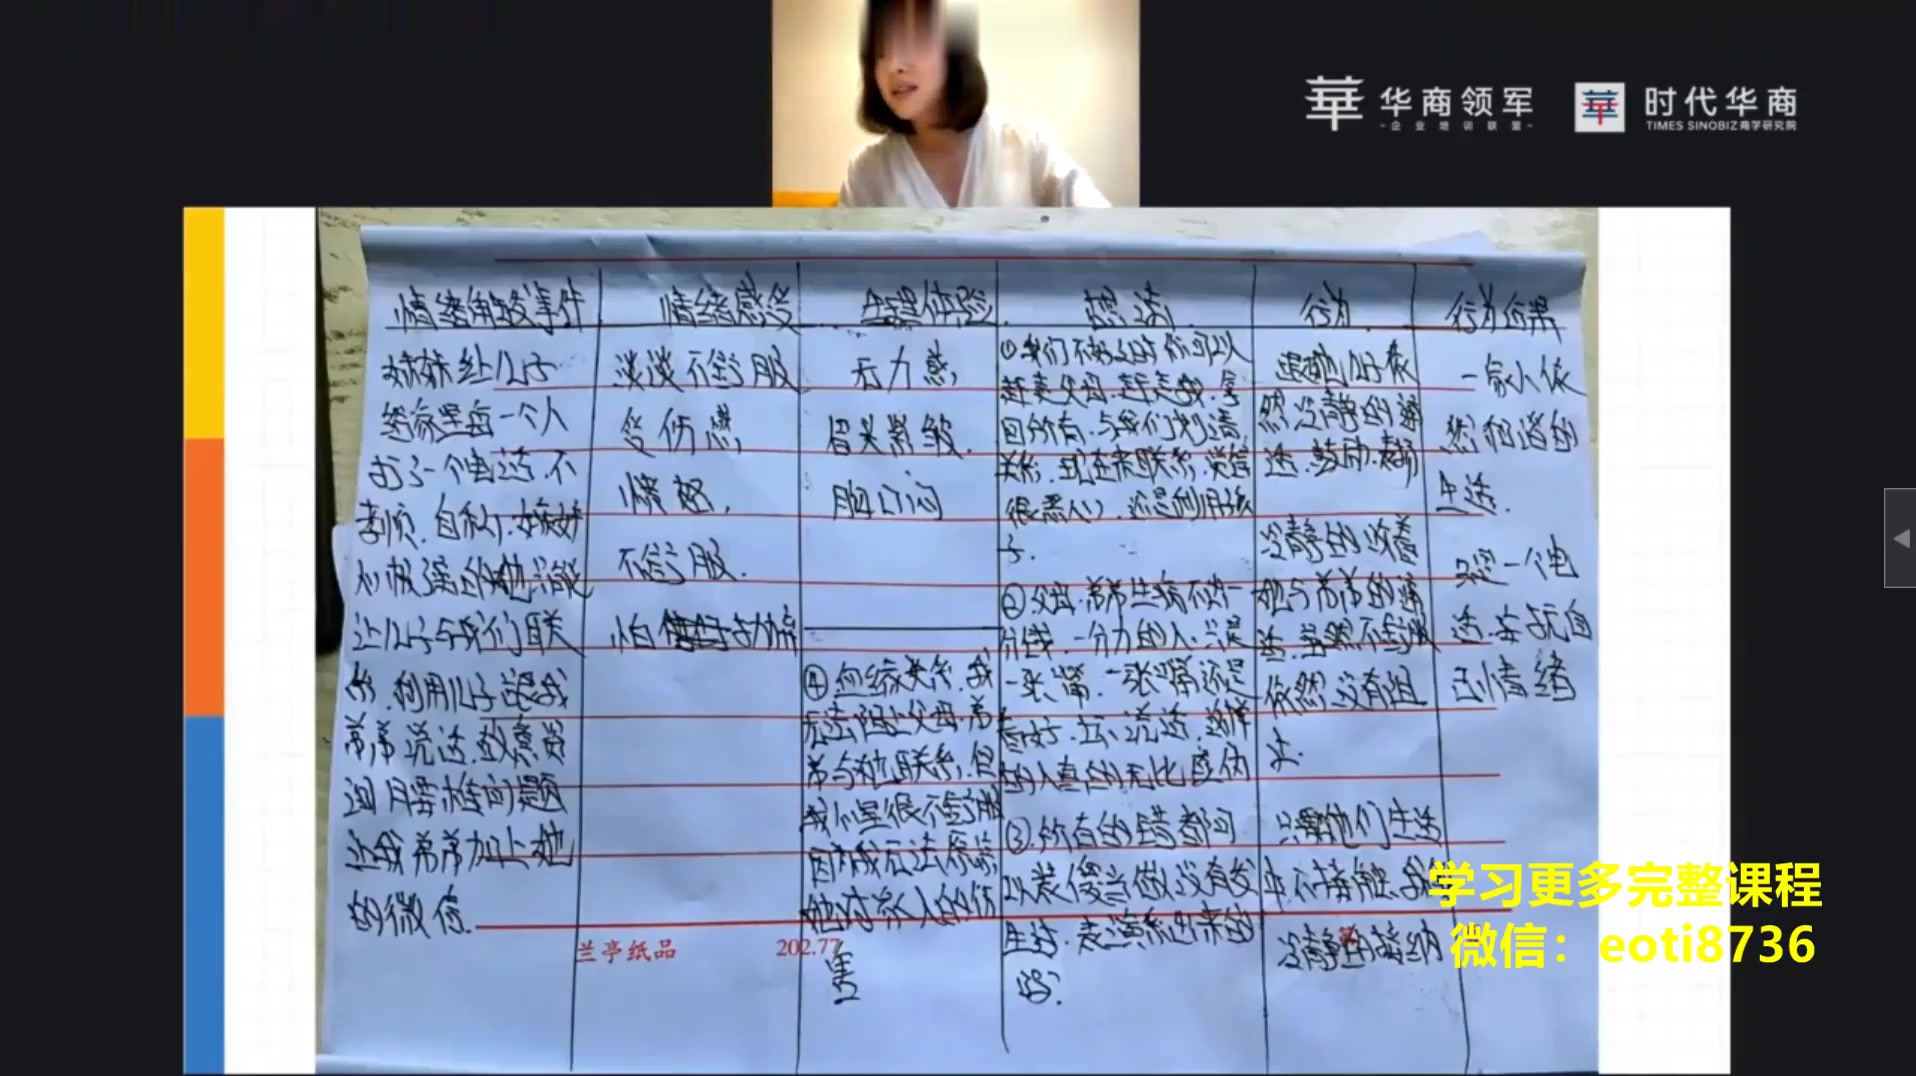 華 华商领军
-企业培训联盟-
華 时代华商
TIMES SINOBIZ商学研究院
情绪触发事件
情绪感受
生理体验
想法
行为
行为后果
妹妹让儿子
给家里每一个人
打了一个电话.不
孝顺.自私.妹妹
心极强的她.只能
让儿子与我们联
系.利用儿子跟我
弟弟说话.故意说
让我弟弟加上她
的微信.
淡淡不舒服
受伤感
愤怒,
不舒服.
怕
无力感,
眉头紧皱.
胸口闷
④血缘关系.我
无法阻止父母.弟
弟与她联系.但
我心里很不舒服
因为我无法原谅
她对家人的伤
害
①我们不好的时你可以
赶走父母.赶走我.拿
回所有.与我们划清
关系.现在来联系.觉得
很恶心.还是利用孩
子.
②父母.弟弟生病不给一
分钱.一分力的人.只是
一张嘴.一张嘴还是
的人真的无比虚伪
③.所有的错都可
以装傻当做没有发
生过.表演系出来的
吗?
跟她儿子依
然冷静的通
话.鼓励.表扬
冷静的听着
她与弟弟的通
话.虽然不舒服
依然没有阻
止.
只要他们生活
中不接触.我
冷静的接纳
一家人依
然和谐的
生活.
只是一个电
话.在玩自
己情绪
兰亭纸品
202.77
学习更多完整课程
微信：eoti8736